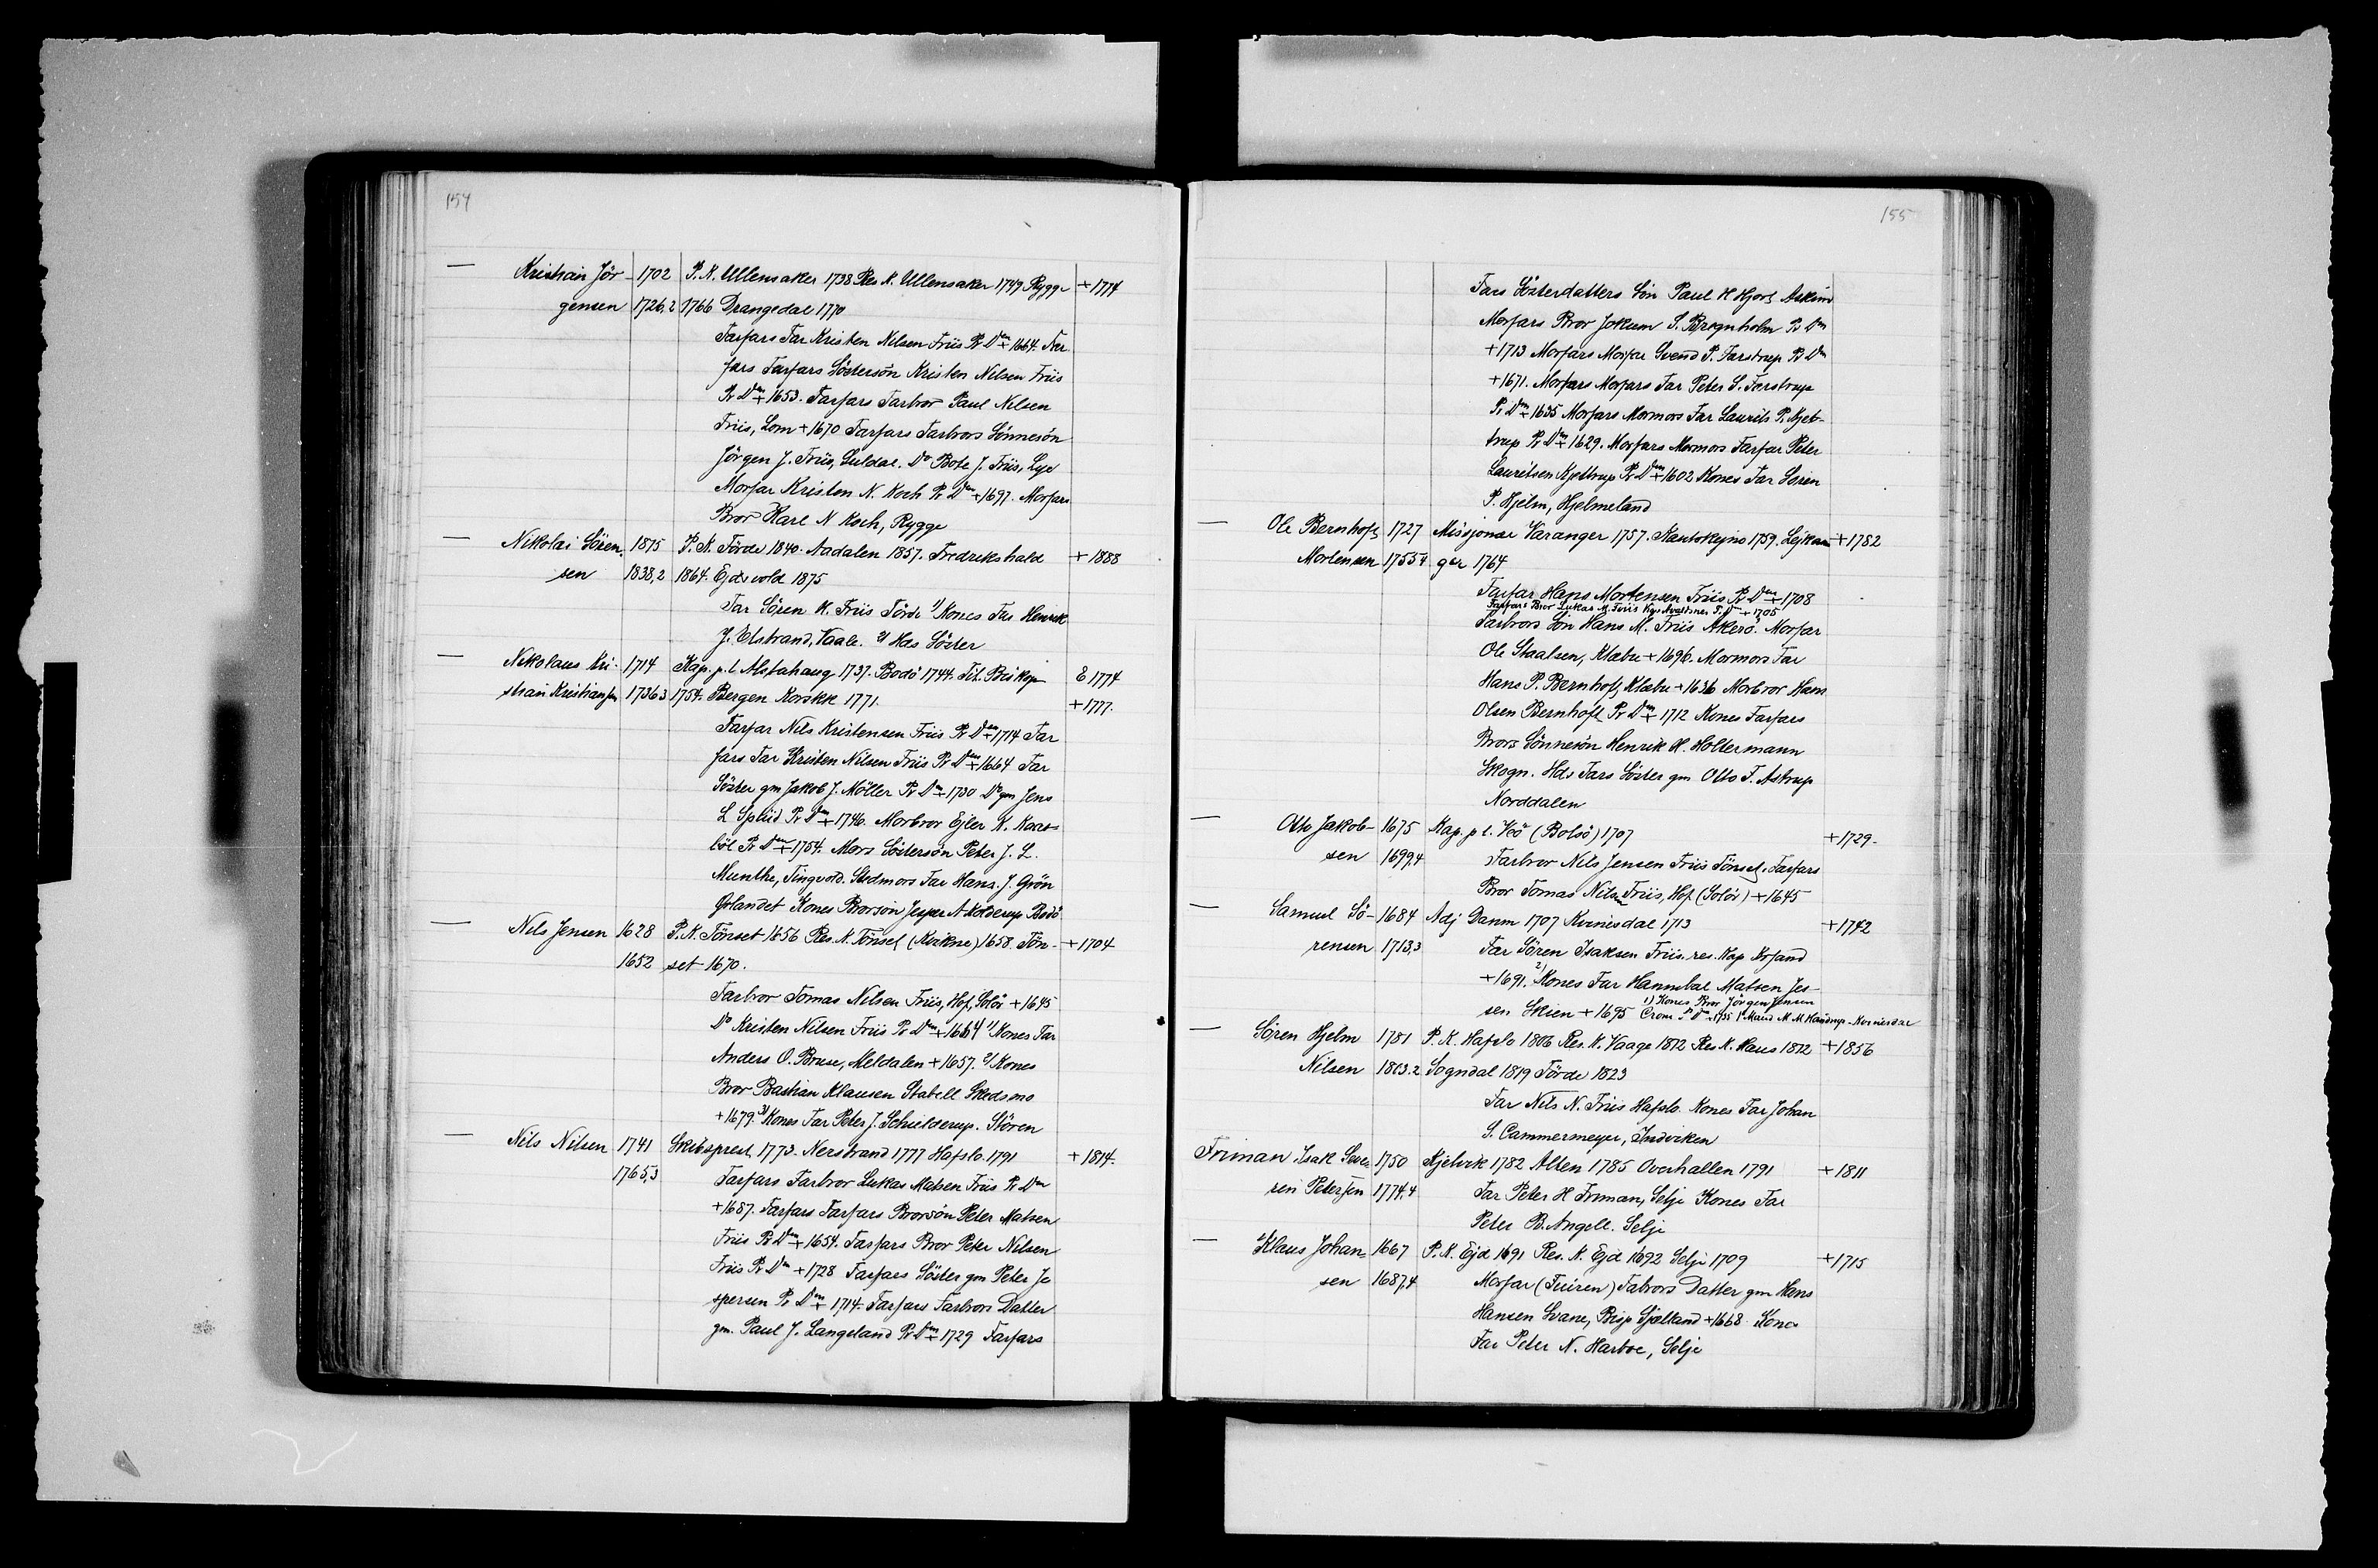 154
— Kristian Jör- 1702 P. K. Ullensaker 1738 Res. K. Ullensaker 1749 Rygge + 1774
gensen 1726,2 1766 Drangedal 1770
Farfars Far Kristen Nilsen Friis Pr Dm + 1664. Far
fars Farfars Söstersön Kristen Nilsen Friis
Pr Dm + 1653. Farfars Farbror Paul Nilsen
Friis, Lom + 1670 Farfars Farbrors Sönnesön
Jörgen J. Friis, Suldal. Do Bote J. Friis, Lye
Morfar Kristen N. Koch Pr Dm + 1697. Morfars
Bror Karl N Koch, Rygge
— Nikolai Sören- 1815 P. K. Förde 1840. Aadalen 1857. Fredrikshald + 1888
sen 1838,2 1864. Ejdsvold 1875
Far Sören K. Friis Förde 1) Kones Far Henrik
J. Elstrand, Vaale. 2) Hds Söster
— Nikolaus Kri- 1714 Kap. p. l. Alstahaug 1737. Bodö 1744. Tit. Biskop E 1774
stian Kristiansen 1736,3 1754. Bergen Korskk 1771. + 1777.
Farfar Nils Kristensen Friis Pr Dm + 1714 Far
fars Far Kristen Nilsen Friis Pr Dm + 1664 Far
Söster gm Jakob J. Möller Pr Dm + 1730 Do gm Jens
L Splid Pr Dm + 1746. Morbror Ejler K. Kaas-
böl Pr Dm + 1754. Mors Söstersön Peter J. L.
Munthe, Tingvold. Stedmors Far Hans J. Grön
Örlandet Kones Brorsön Jesper A Kolderup Bodö
— Nils Jensen 1628 P. K. Tönset 1656 Res. K. Tönset (Kvikne) 1658. Tön- + 1704
1652 set 1670.
Farbror Tomas Nilsen Friis, Hof, Solör + 1645
Do Kristen Nilsen Friis Pr Dm + 1664 1) Kones Far
Anders O. Bruse, Meldalen + 1657. 2) Kones
Bror Bastian Klausen Stabell Skedsmo
+ 1679. 3) Kones Far Peter J. Schielderup. Stören
— Nils Nilsen 1741 Skibsprest 1773. Nerstrand 1777 Hafslo. 1791 + 1814.
1765,3 Farfars Farbror Lukas Matsen Friis Pr Dm
+ 1687. Farfars Farfars Brorsön Peter Matsen
Friis Pr Dm + 1654. Farfars Bror Peter Nilsen
Friis Pr Dm + 1728 Farfars Söster gm Peter Je
spersen Pr Dm + 1714. Farfars Farbrors Datter
gm. Paul J. Langeland Pr Dm + 1729 Farfars
155
Fars Sösterdatters Sön Paul H Hjort Askim
Morfars Bror Jokum S. Brøgnholm Pr Dm
+ 1713 Morfars Morfar Svend P. Farstrup Pr Dm
+ 1671. Morfars Morfars Far Peter S. Farstrup
Pr Dm + 1635 Morfars Mormors Far Laurits P. Kjet-
trup Pr Dm + 1629. Morfars Mormors Farfar Peter
Lauritsen Kjettrup Pr Dm + 1602 Kones Far Sören
P. Hjelm, Hjelmeland
— Ole Bernhoft 1727 Missjonær Varanger 1757. Kautokejno 1759. Lejkan + 1782
Mortensen 1755,4 ger 1764
Farfar Hans Mortensen Friis Pr Dm + 1708
Farfars Bror Lukas M. Friis Kap Avaldsnes Pr Dm + 1705
Farbrors Sön Hans M. Friis Akerö. Morfar
Ole Staalsen, Klæbu + 1696. Mormors Far
Hans P. Bernhoft, Klæbu + 1636 Morbror Hans
Olsen Bernhoft Pr Dm + 1712 Kones Farfars
Brors Sönnesön Henrik H. Holtermann
Skogn. Hds Fars Söster gm Otto F. Astrup
Norddalen
— Otto Jakob- 1675 Kap. p l. Veö (Bolsö) 1707 + 1729.
sen 1699,4 Farbror Nils Jensen Friis Tönset. Farfars
Bror Tomas Nilsen Friis, Hof (Solör) + 1645
— Samuel Sö- 1684 Adj Danm 1707 Kvinesdal 1713 + 1742
rensen 1713,3 Far Sören Isaksen Friis res. Kap Krsand
+ 1691. 2) Kones Far Hannibal Matsen Jes-
sen Skien + 1695 1) Kones Bror Jörgen Jensen
Crom Pr Dm + 1735 1' Mand M. M. Handrup - Kvinesdal
— Sören Hjelm 1781 P. K. Hafslo 1806 Res. K. Vaage 1812 Res K. Haus 1812 + 1856
Nilsen 1803.2 Sogndal 1819 Förde 1823
Far Nils N. Friis Hafslo. Kones Far Johan
S. Cammermeyer, Indviken
Friman Isak Seve- 1750 Kjelvik 1782 Alten 1785 Overhallen 1791 + 1811
rin Petersen 1774,4 Far Peter H Friman, Selje Kones Far
Peter B. Angell. Selje
— Klaus Johan- 1667 P. K. Ejd 1691 Res. K. Ejd 1692 Selje 1709 + 1715
sen 1687,4 Morfar (Fuiren) Fabrors Datter gm Hans
Hansen Svane, Bisp Sjælland + 1668. Kones
Far Peter N. Harboe, Selje